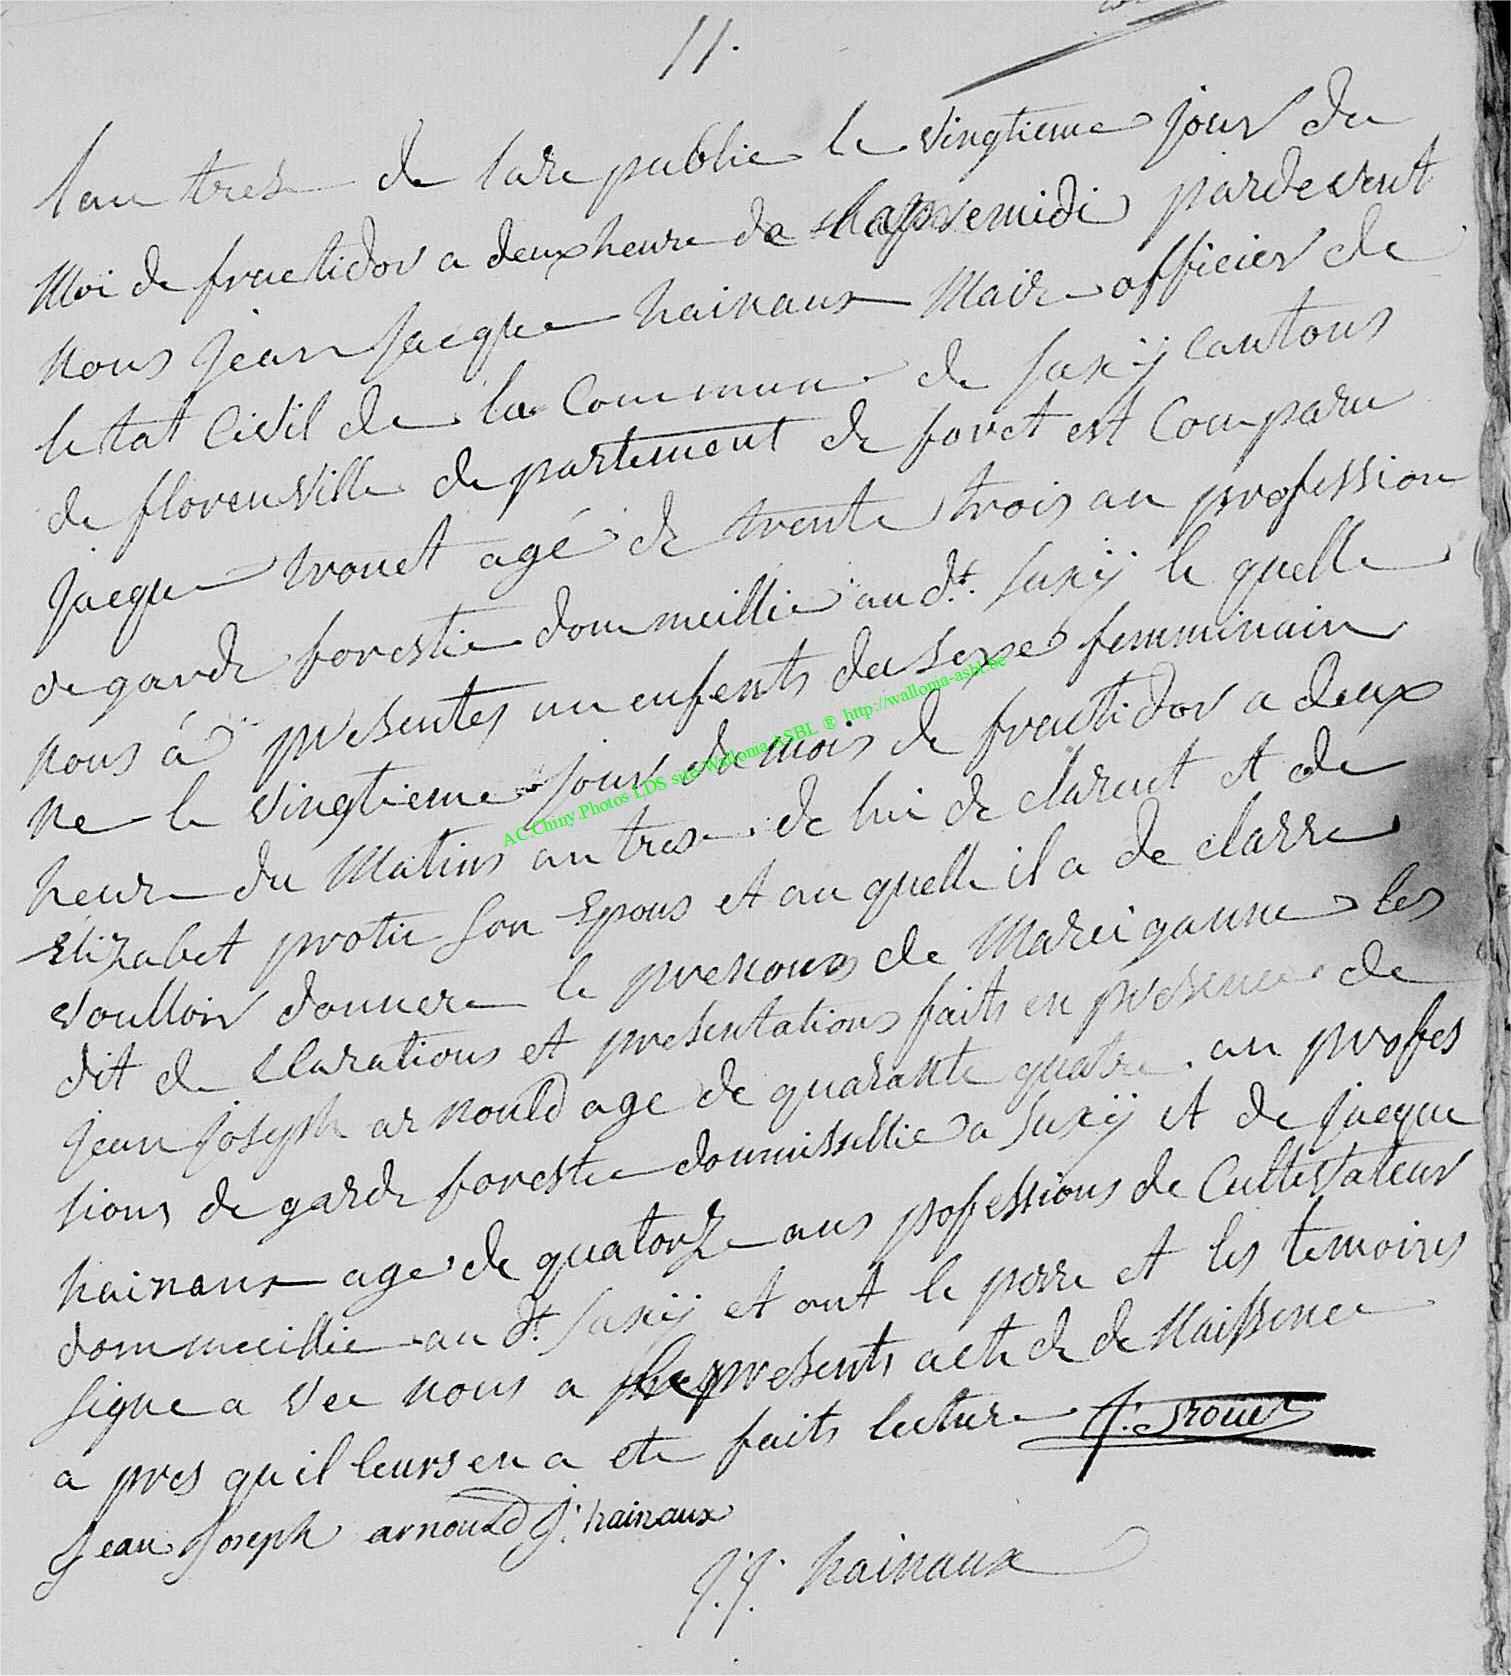 11.
lan tres de lare publie le vingtieme jour du
Moi de fructidor a deux heure de laprsemidi pardevent
nous jean jacque hainaux Maire officier de
letat Civil de la Commune de suxÿ Cantons
de florenville de partement de foret est Comparu
jacque trouet agé de trente trois an profession
de garde forestie dommeillie au dt. Suxÿ le quelle
nous à presentes un enfents du sexe femminain
ne le vingtieme jour du mois de fructidor a deux
heure du Matins an trese de lui de clarent et de
Elizabet protin son Epous et au quelle il a de clarre
voulloir donnere le prenoms de Marie ganne les
dit de Clarations et presentations faits en presence de
jean joseph arnould age de quarante quatre an profes
sions de garde forestie dommissillie a Suxÿ et de jacque
hainaux age de quatorze ans pofessions de Cultivateur
dommecillie au dt. Suxÿ et ont le perre et les temoins
signe a vec nous a presents acte de de Naissence
a pres qu il leurs en a ete faits lecture J: Trouet
jean joseph arnould J: hainaux
J.J. hainaux
AC.Chiny Photos LDS sur Wallonia ASBL ® http://wallonia-asbl.be